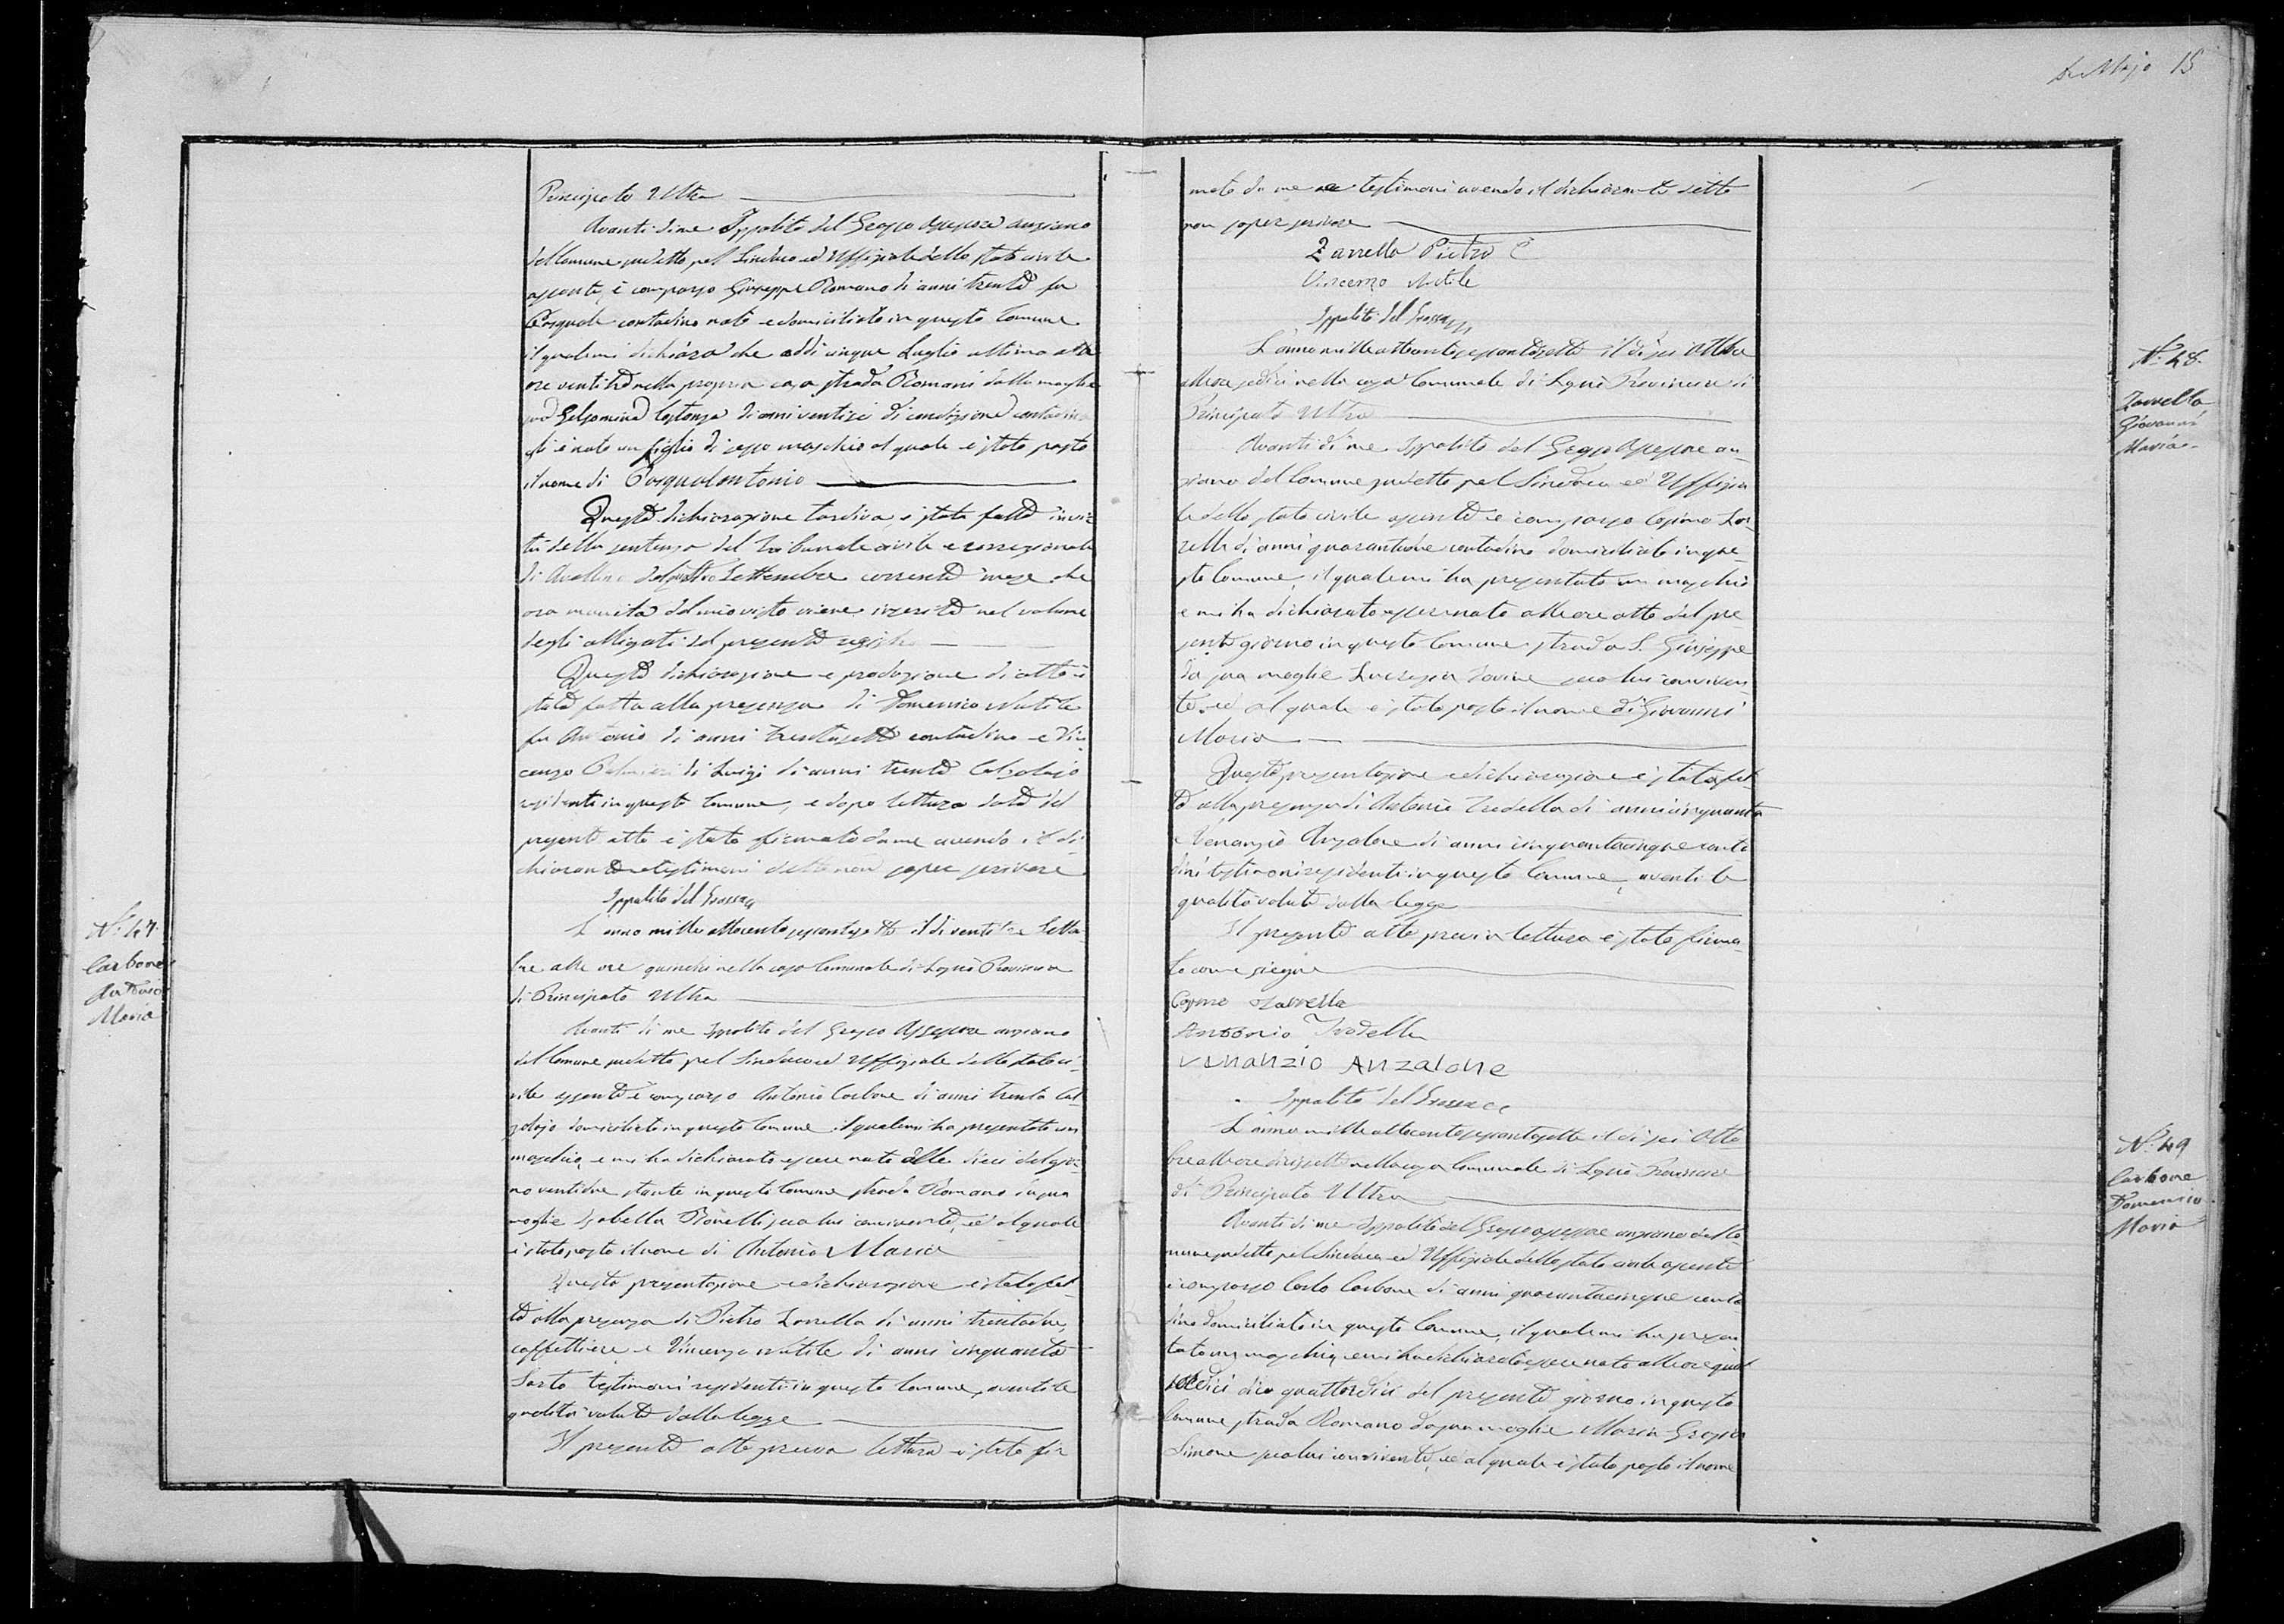 15
Principato Ultra
Avanti di me Ippolito del Grosso Assessore anziano
del Comune sudetto pel Sindaco ed Uffiziale dello stato civile
assente, è comparso Giuseppe Romano di anni trenta fu
Pasquale contadino nato e domiciliato in questo Comune
il quale mi dichiara che addì cinque Luglio ultimo alle
ore ventitrè nella propria casa strada Romani dalla moglie
sua Gelsomina di anni ventisei di condizione contadina
gli è nato un figlio di sesso maschio al quale è stato posto
il nome di Pasqualantonio
Questa dichiarazione tardiva, è stata fatta in vir
tù della sentenza del Tribunale civile e correzionale
di Avellino Settembre corrente mese che
ora munita dal mio visto viene inserita nel volume
degli alligati del presente registro
Questa dichiarazione e produzione di atto è
stata fatta alla presenza di Domenico Natile
fu Antonio di anni trentasette contadino e Vin
cenzo Palmieri di Luigi di anni trenta Calzolajo
residenti in questo Comune, e dopo lettura data del
presente atto è stato firmato da me avendo il di
chiarante e testimoni detto non saper scrivere
Ippolito del Grosso
N.º 47
Carbone
Antonio
Maria
L'anno mille ottocento sessantasette il dì ventitre Settem
bre alle ore quindici nella casa Comunale di Lognì Provincia
di Principato Ultra
Avanti di me Ippolito del Grosso Assessore anziano
del Comune sudetto pel Sindaco ed Uffiziale dello stato ci
vile assente è comparso Antonio Carbone di anni trenta Cal
zolajo domiciliato in questo Comune il quale mi ha presentato un
maschio, e mi ha dichiarato essere nato alle dieci del gior
no ventidue stante in questo Comune strada Romano da sua
moglie Isabella seco lui convivente, ed al quale
è stato posto il nome di Antonio Maria
Questa presentazione e dichiarazione è stata fat
ta alla presenza di Pietro Zarrella di anni trentadue,
caffettiere e Vincenzo Natile di anni cinquanta
Sarto testimoni residenti in questo Comune, aventi le
qualità volute dalla legge
Il presente atto previa lettura è stato fir
mato da me e testimoni avendo il dichiarante detto
non saper scrivere
Zarrella Pietro
Vincenzo Natile
Ippolito del Grosso
N.º 48
Zarrella
Giovanni
Maria
L'anno mille ottocento sessantasette il dì sei Ottobre
alle ore sedici nella casa Comunale di Lognì Provincia di
Principato Ultra
Avanti di me Ippolito del Grosso Assessore an
ziano del Comune sudetto pel Sindaco ed Uffizia
le dello stato civile assente è comparso Cosimo Zar
rella di anni quarantadue contadino domiciliato in que
sto Comune, il quale mi ha presentato un maschio
e mi ha dichiarato esser nato alle ore otto del pre
sente giorno in questo Comune strada S. Giuseppe
da sua moglie Lucrezia seco lui conviven
te, ed al quale è stato posto il nome di Giovanni
Maria
Questa presentazione e dichiarazione è stata fat
ta alla presenza di Antonio Tradella di anni cinquanta
e Venanzio Anzalone di anni cinquantacinque conta
dini testimoni residenti in questo Comune, aventi le
qualità volute dalla legge
Il presente atto previa lettura è stato firma
to come siegue
Cosimo Zarrella
Antonio Tradella
Venanzio Anzalone
Ippolito del Grosso
N.º 49
Carbone
Domenico
Maria
L'anno mille ottocento sessantasette il dì sei Otto
bre alle ore diciassette nella casa Comunale di Lognì Provincia
di Principato Ultra
Avanti di me Ippolito del Grosso assessore anziano del Co
mune sudetto pel Sindaco ed Uffiziale dello stato civile assente
è comparso Carlo Carbone di anni quarantacinque conta
dino domiciliato in questo Comune, il quale mi ha presen
tato un maschio, e mi ha dichiarato esser nato alle ore
sedici dico quattordici del presente giorno in questo
Comune strada Romano da sua moglie Maria Grazia
Simone seco lui convivente, ed al quale è stato posto il nome